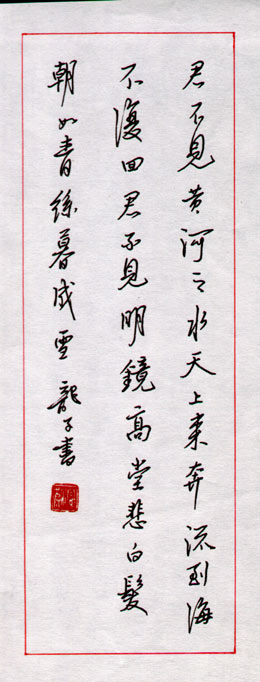 君不見黄河之水天上來奔流到海
不復回君不見明鏡高堂悲白髮
朝如青絲暮成雪 龍子書